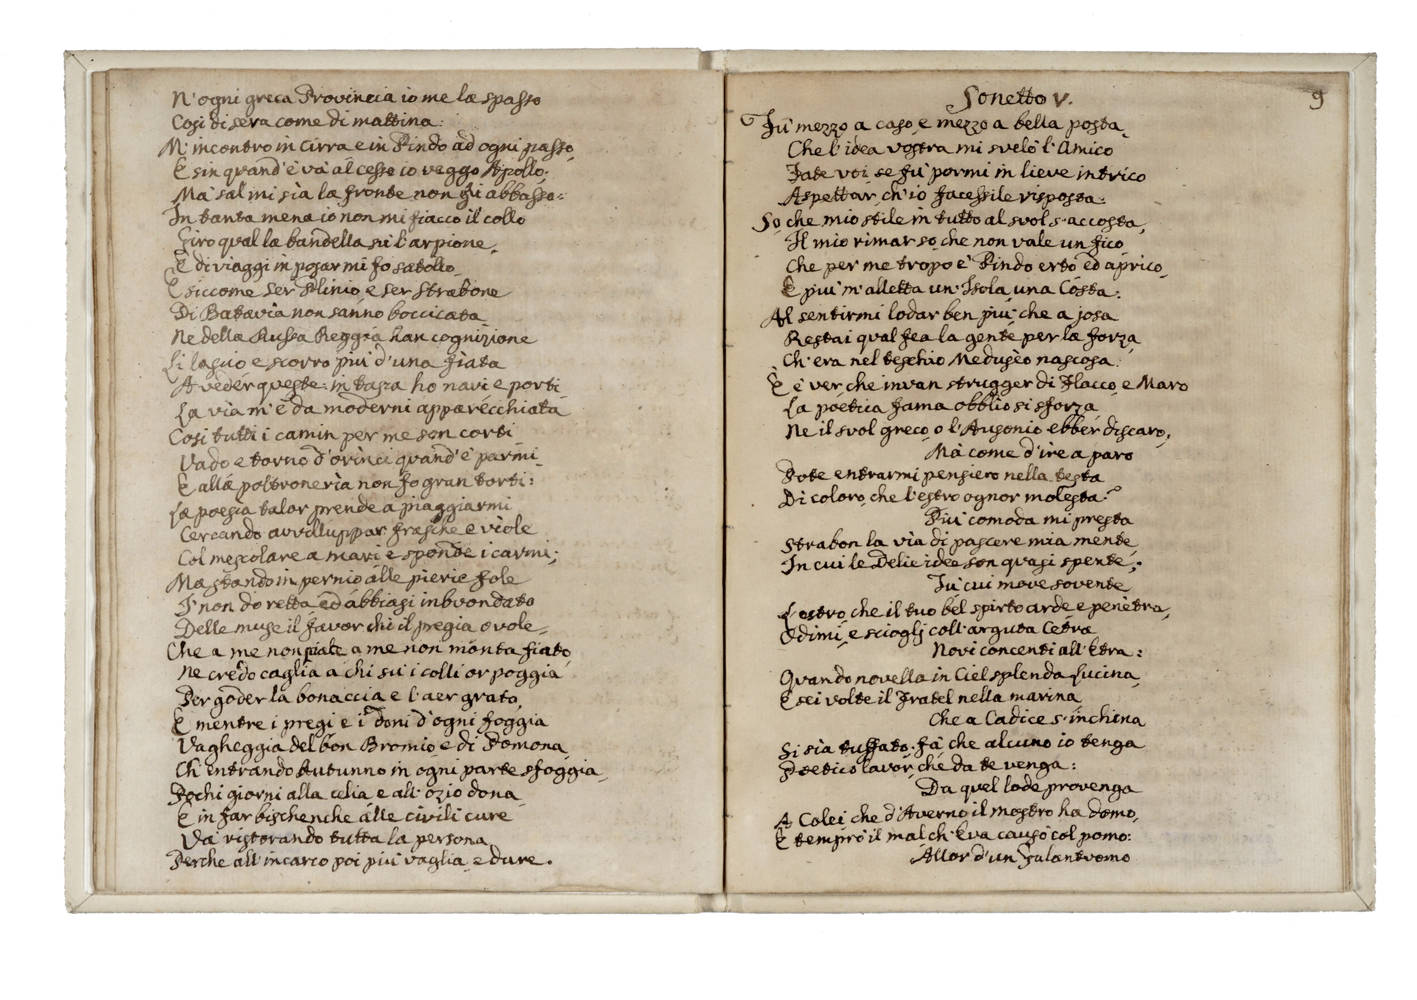 N'ogni greca Provincia io me la spasso
Cosi di sera come di mattina:
M'incontro in Cirra e in Pindo ad ogni passo,
E sin quand'è va' al cesso io veggo Apollo;
Ma' sal mi sia la fronte non fù abbasso:
In tanta mena io non mi fiacco il collo
Giro qual la bandella sù l'arpione,
E di viaggi in posar mi fo satollo,
E siccome ser Plinio, e ser Strabone
Di Batavia non sanno boccicata
Ne della Russa Reggia han cognizione
Li lascio e scorro più d'una fiata
A veder queste: in tasca ho navi e porti,
La via m'è da moderni apparecchiata
Cosi tutti i camin per me son corti,
Vado e torno d'orinci quand'è parmi,
E alla poltroneria non fo gran torti:
La poesia talor prende a piaggiarmi
Cercando avviluppar frasche e viole
Col mescolare a mari e sponde i carmi;
Ma stando in pernio alle pierie fole
I' non dò retta ed abbiasi inbrondato
Delle muse il favor chi il pregia o vole,
Che a me non piace a me non monta fiato,
Ne credo caglia a chi sù i colli or poggia
Per goder la bonaccia e l'aer grato,
E mentre i pregi e i doni d'ogni foggia
Vagheggia del bon Bromio e di Pomona,
Ch'entrando Autunno in ogni parte sfoggia,
Pochi giorni alla celia e all'ozio dona,
E in far bischenche alle civili cure
Va' ristorando tutta la persona,
Perche all'incarco poi più vaglia, e dure.
9
Sonetto V.
Fù mezzo a caso, e mezzo a bella posta,
Che l'idea vostra mi svelò l'Amico
Fate voi se fù pormi in lieve intrico
Aspettar, ch'io facessile risposta:
So, che mio stile in tutto al svol s'accosta,
Il mio rimar so, che non vale un fico,
Che per me tropo è Pindo erto ed aprico,
E più m'alletta un'Isola, una Costa:
Al sentirmi lodar ben più, che a josa
Restai qual fea la gente per la forza,
Ch'era nel teschio Medusèo nascosa:
E è ver, che invan strugger di Flacco, e Maro
La poetica fama obblio si sforza,
Ne il svol greco, o l'Ausonio ebber discaro,
Mà come d'ire a paro
Pote entrarmi pensiero nella testa
Di coloro, che l'estro ognor molesta?
Più comoda mi presta
Strabon la via di pascere mia mente,
In cui le Delie idee son quasi spente;
Tù cui move sovente
L'ostro, che il tuo bel spirto arde e penetra,
Odimi, e sciogli coll'arguta Cetra
Novi concenti all'Etra:
Quando novella in Ciel splenda Lucina,
E sei volte il Fratel nella marina,
Che a Cadice s'inchina
Si sia tuffato, fà che alcuno io tenga
Poetico lavor, che da te venga:
Da quel lode provenga
A Colei che d'Averno il mostro ha domo,
E temprò il mal ch'Eva causò col pomo:
Allor d'un Galantuomo